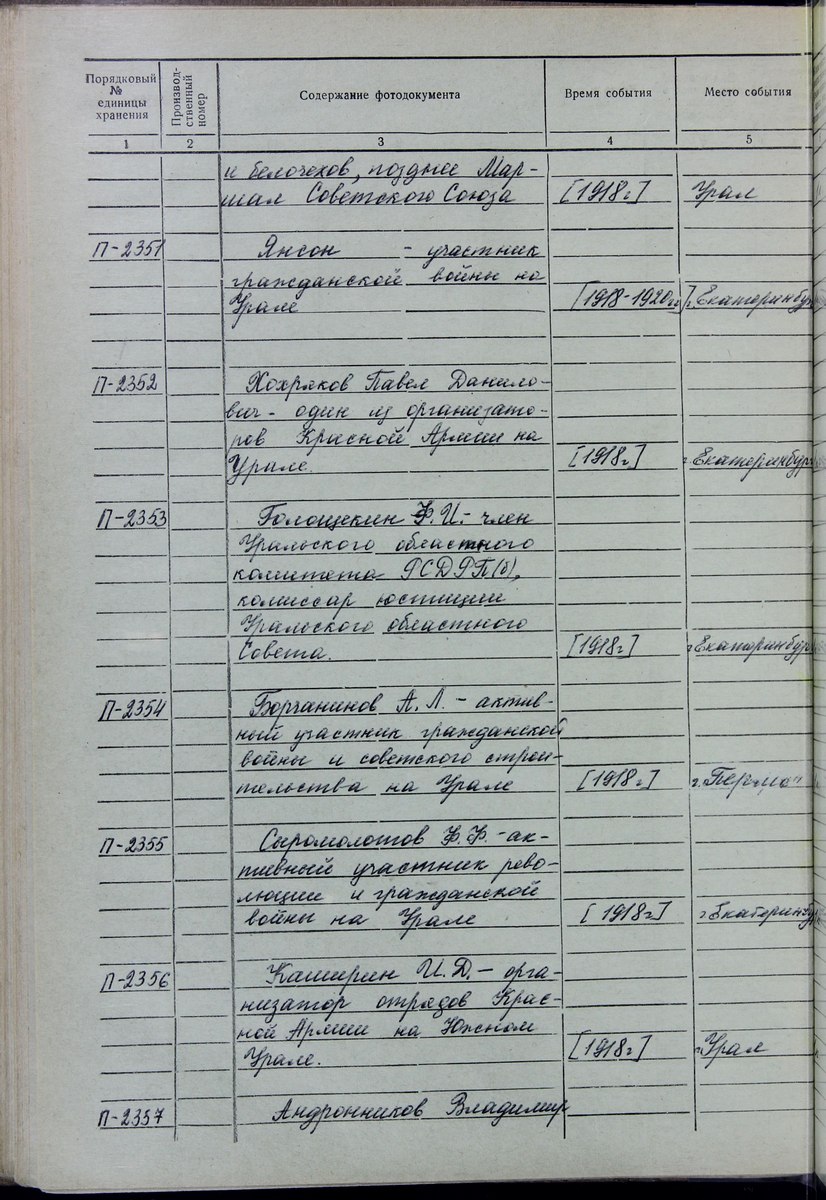 Порядковый № единицы хранения
Производ- ственный номер
Содержание фотодокумента
Время события
Место события
1 2 3 4 5
и белочехов, позднее Мар-
шал Советского Союза [1918г.] Урал
П-2351 Янсон - участник
гражданской войны на
Урале [1918-1920гг.] г. Екатеринбург
П-2352 Хохряков Павел Данило-
вич - один из организато-
ров Красной Армии на
Урале. [1918г.] г. Екатеринбург
П-2353 Голощекин Ф.И. - член
Уральского областного
комитета РСДРП(б),
комиссар юстиции
Уральского областного
Совета. [1918г.] г. Екатеринбург
П-2354 Борчанинов А.Л. - актив-
ный участник гражданской
войны и советского строи-
тельства на Урале [1918г.] г. Пермь
П-2355 Сыромолотов Ф.Ф. - ак-
тивный участник рево-
люции и гражданской
войны на Урале [1918г.] г. Екатеринбург
П-2356 Каширин И.Д. - орга-
низатор отрядов Крас-
ной Армии на Южном
Урале. [1918г.] Урал
П-2357 Андронников Владимир